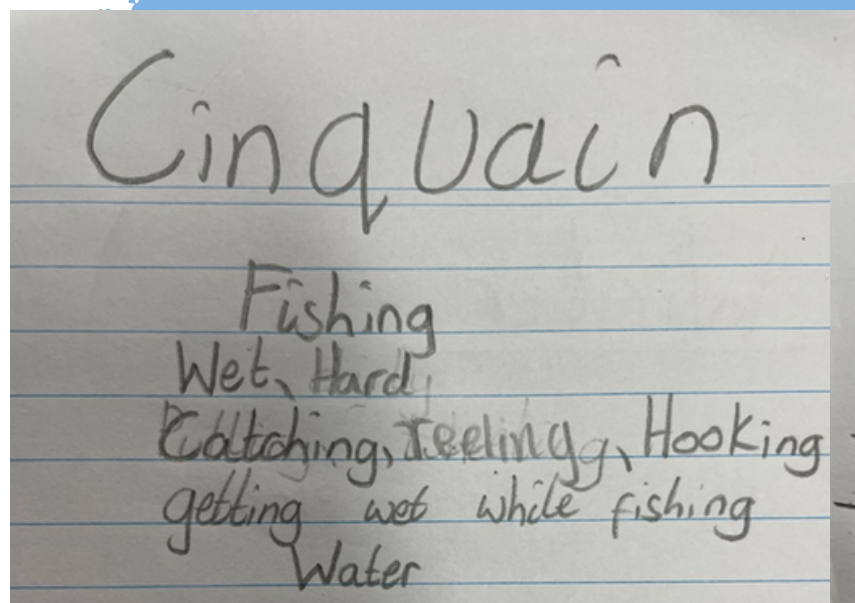 Cinquain
Fishing
Wet, Hard
Catching, reeling, Hooking
getting wet while fishing
Water